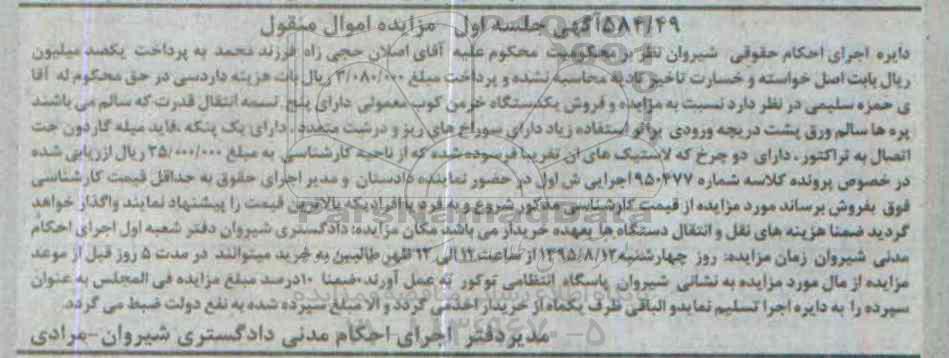 ۵۸۴/۴۹آگهی جلسه اول مزایده اموال منقول
دایره اجرای احکام حقوقی شیروان نظر بر محکومیت محکوم علیه آقای اصلان حجی زاه فرزند محمد به پرداخت یکصد میلیون
ریال بابت اصل خواسته و خسارت تاخیر تادیه محاسبه نشده و پرداخت مبلغ ۳/۰۸۰/۰۰۰ ریال بابت هزینه دادرسی در حق محکوم له آقا
ی حمزه سلیمی در نظر دارد نسبت به مزایده و فروش یکدستگاه خرمن کوب معمولی دارای پنج تسمه انتقال قدرت که سالم می باشند
پره ها سالم ورق پشت دریچه ورودی براثر استفاده زیاد دارای سوراخ های ریز و درشت متعدد، دارای یک پنکه ،فاید میله گاردون جت
اتصال به تراکتور، دارای دو چرخ که لاستیک های ان تقریبا فرسوده شده که از ناحیه کارشناسی به مبلغ ۲۵/۰۰۰/۰۰۰ ریال ارزیابی شده
در خصوص پرونده کلاسه شماره ۹۵۰۴۷۷ اجرایی ش اول در حضور نماینده دادستان و مدیر اجرای حقوق به حداقل قیمت کارشناسی
فوق بفروش برساند مورد مزایده از قیمت کارشناسی مذکور شروع و به فرد یا افرادیکه بالاترین قیمت را پیشنهاد نمایند واگذار خواهد
گردید ضمنا هزینه های نقل و انتقال دستگاه ها بعهده خریدار می باشد مکان مزایده: دادگستری شیروان دفتر شعبه اول اجرای احکام
مدنی شیروان زمان مزایده: روز چهارشنبه ۱۳۹۵/۸/۱۲ از ساعت ۱۲ الی ۱۳ ظهر طالبین به خرید میتوانند در مدت ۵ روز قبل از موعد
مزایده از مال مورد مزایده به نشانی شیروان پاسگاه انتظامی توکور به عمل آورند ،ضمنا ۱۰درصد مبلغ مزایده فی المجلس به عنوان
سپرده را به دایره اجرا تسلیم نمایدو الباقی ظرف یکماه از خریدار اخذ می گردد و الا مبلغ سپرده شده به نفع دولت ضبط می گردد.
مدیردفتر اجرای احکام مدنی دادگستری شیروان-مرادی
ParsNamadData